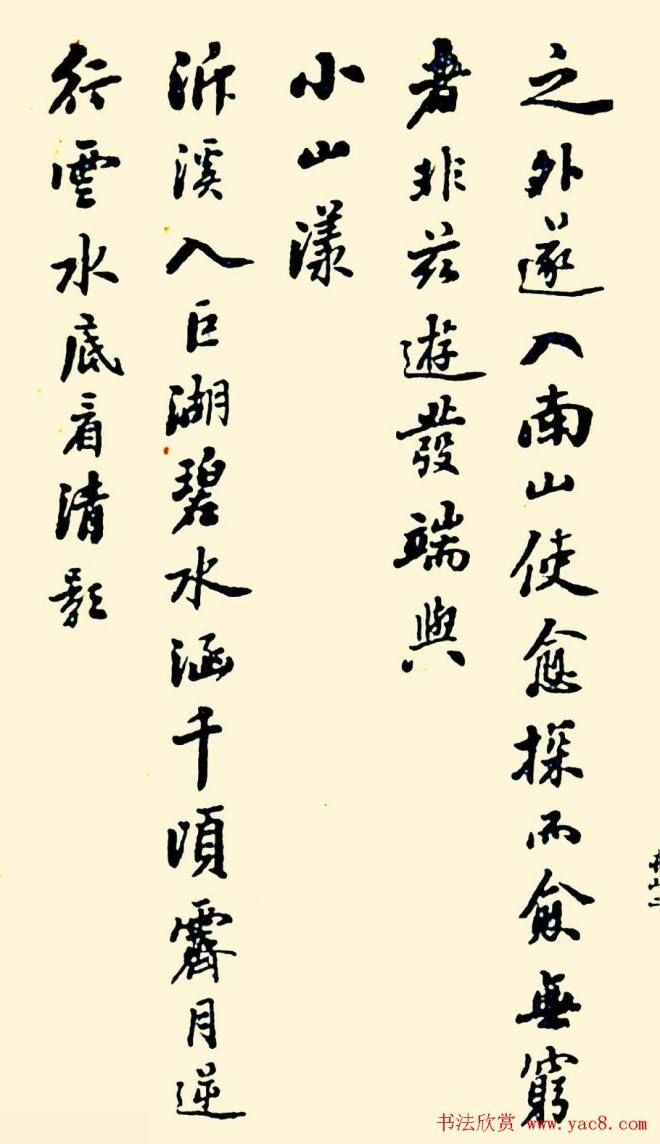 之外遂入南山使愈探而愈無窮
者非兹遊發端與
小山漾
泝溪入巨湖碧水涵千頃霽月逆
行雲水底看清影
书法欣赏 www.yac8.com